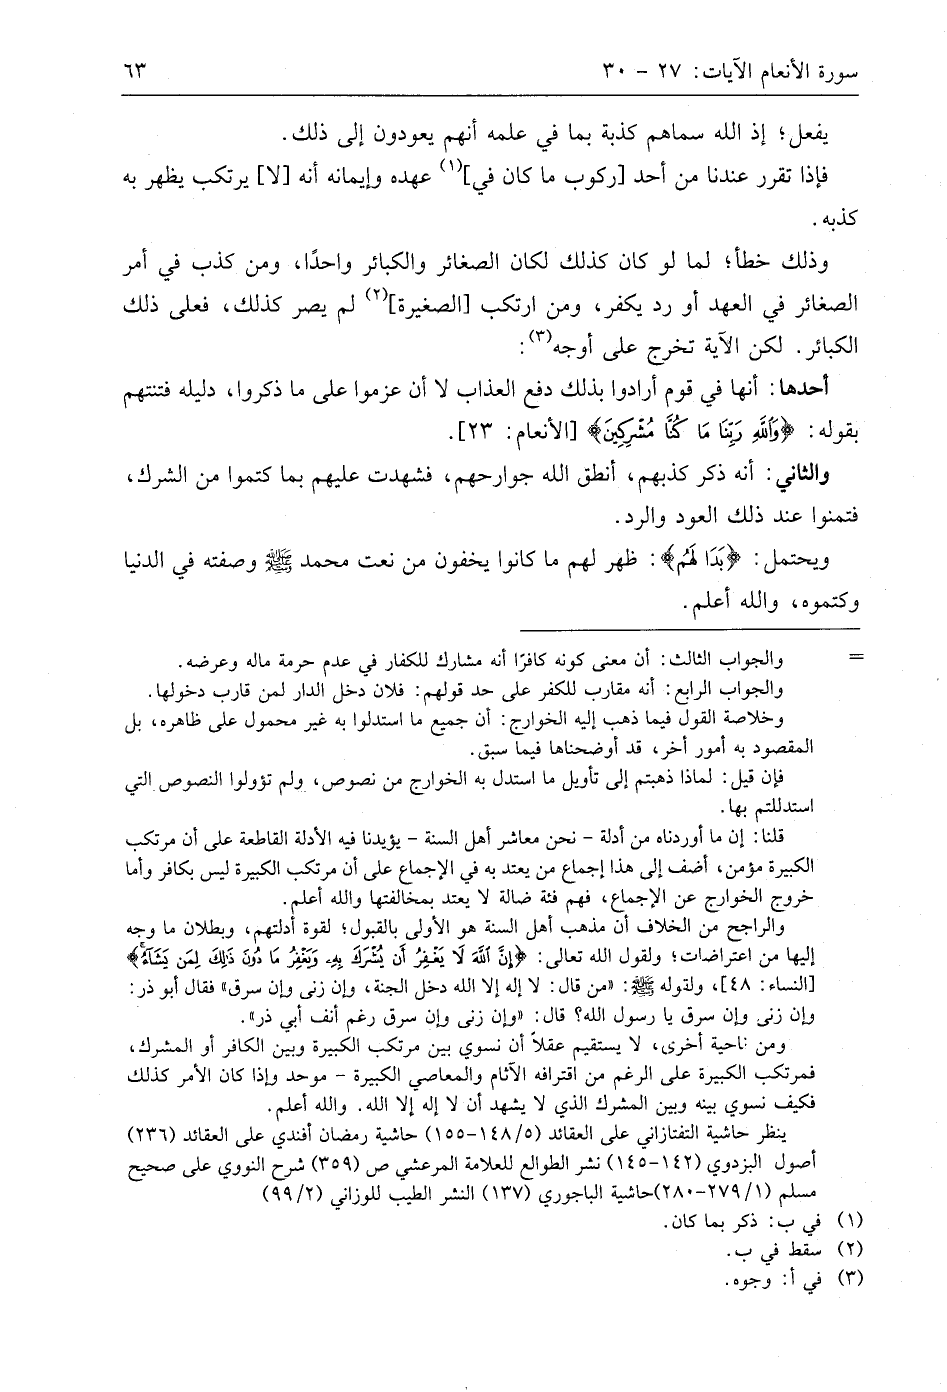 سورة الأنعام الآيات: ٢٧ - ٣٠ ٦٣
يفعل؛ إذ الله سماهم كذبة بما في علمه أنهم يعودون إلى ذلك.
فإذا تقرر عندنا من أحد [ركوب ما كان في](١) عهده وإيمانه أنه [لا] يرتكب يظهر به
كذبه.
وذلك خطأ؛ لما لو كان كذلك لكان الصغائر والكبائر واحدًا، ومن كذب في أمر
الصغائر في العهد أو رد يكفر، ومن ارتكب [الصغيرة](٢) لم يصر كذلك، فعلى ذلك
الكبائر. لكن الآية تخرج على أوجه(٣):
أحدها: أنها في قوم أرادوا بذلك دفع العذاب لا أن عزموا على ما ذكروا، دليله فتنتهم
بقوله: ﴿وَٱللَّهِ رَبِّنَا مَا كُنَّا مُشْرِكِينَ﴾ [الأنعام: ٢٣].
والثاني: أنه ذكر كذبهم، أنطق الله جوارحهم، فشهدت عليهم بما كتموا من الشرك،
فتمنوا عند ذلك العود والرد.
ويحتمل: ﴿بَدَا لَهُم﴾: ظهر لهم ما كانوا يخفون من نعت محمد ﷺ وصفته في الدنيا
وكتموه، والله أعلم.
= والجواب الثالث: أن معنى كونه كافرًا أنه مشارك للكفار في عدم حرمة ماله وعرضه.
والجواب الرابع: أنه مقارب للكفر على حد قولهم: فلان دخل الدار لمن قارب دخولها.
وخلاصة القول فيما ذهب إليه الخوارج: أن جميع ما استدلوا به غير محمول على ظاهره، بل
المقصود به أمور أخر، قد أوضحناها فيما سبق.
فإن قيل: لماذا ذهبتم إلى تأويل ما استدل به الخوارج من نصوص، ولم تؤولوا النصوص التي
استدللتم بها.
قلنا: إن ما أوردناه من أدلة - نحن معاشر أهل السنة - يؤيدنا فيه الأدلة القاطعة على أن مرتكب
الكبيرة مؤمن، أضف إلى هذا إجماع من يعتد به في الإجماع على أن مرتكب الكبيرة ليس بكافر وأما
خروج الخوارج عن الإجماع، فهم فئة ضالة لا يعتد بمخالفتها والله أعلم.
والراجح من الخلاف أن مذهب أهل السنة هو الأولى بالقبول؛ لقوة أدلتهم، وبطلان ما وجه
إليها من اعتراضات؛ ولقول الله تعالى: ﴿إِنَّ ٱللَّهَ لَا يَغْفِرُ أَن يُشْرَكَ بِهِۦ وَيَغْفِرُ مَا دُونَ ذَٰلِكَ لِمَن يَشَآءُۚ﴾
[النساء: ٤٨]، ولقوله ﷺ: «من قال: لا إله إلا الله دخل الجنة، وإن زنى وإن سرق» فقال أبو ذر:
وإن زنى وإن سرق يا رسول الله؟ قال: «وإن زنى وإن سرق رغم أنف أبي ذر».
ومن ناحية أخرى، لا يستقيم عقلاً أن نسوي بين مرتكب الكبيرة وبين الكافر أو المشرك،
فمرتكب الكبيرة على الرغم من اقترافه الآثام والمعاصي الكبيرة - موحد وإذا كان الأمر كذلك
فكيف نسوي بينه وبين المشرك الذي لا يشهد أن لا إله إلا الله. والله أعلم.
ينظر حاشية التفتازاني على العقائد (١٤٨/٥-١٥٥) حاشية رمضان أفندي على العقائد (٢٣٦)
أصول البزدوي (١٤٢-١٤٥) نشر الطوالع للعلامة المرعشي ص (٣٥٩) شرح النووي على صحيح
مسلم (٢٧٩/١-٢٨٠)حاشية الباجوري (١٣٧) النشر الطيب للوزاني (٩٩/٢)
(١) في ب: ذكر بما كان.
(٢) سقط في ب.
(٣) في أ: وجوه.